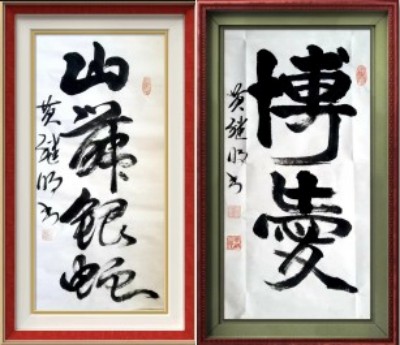 山舞銀蛇
黄继明书
博愛
黄继明书